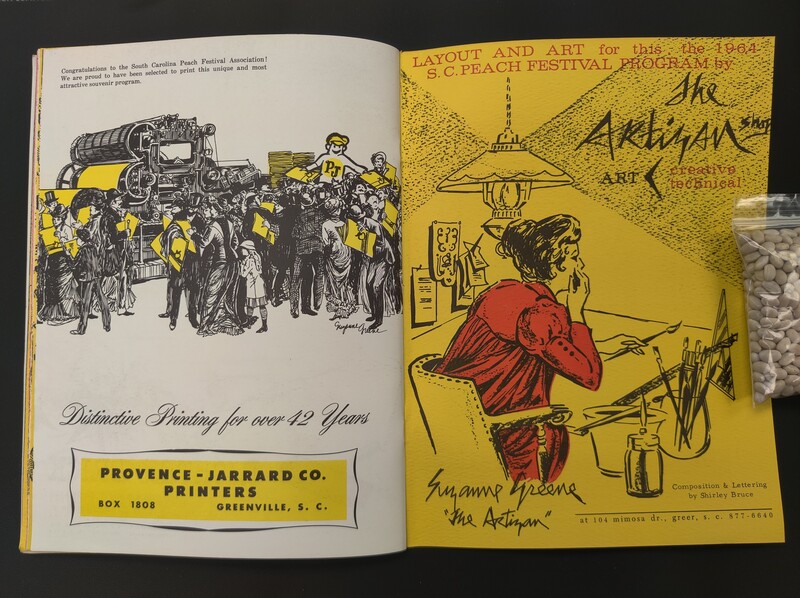 Congratulations to the South Carolina Peach Festival Association!
We are proud to have been selected to print this unique and most
attractive souvenir program.
PJ
Suzanne Greene
Distinctive Printing for over 42 Years
PROVENCE - JARRARD CO.
PRINTERS
BOX 1808 GREENVILLE, S. C.
LAYOUT AND ART for this the 1964
S.C. PEACH FESTIVAL PROGRAM by
The
ARTizan shop
ART creative
technical
Suzanne Greene
"The Artizan"
Composition & Lettering
by Shirley Bruce
at 104 mimosa dr., greer, s. c. 877-6640